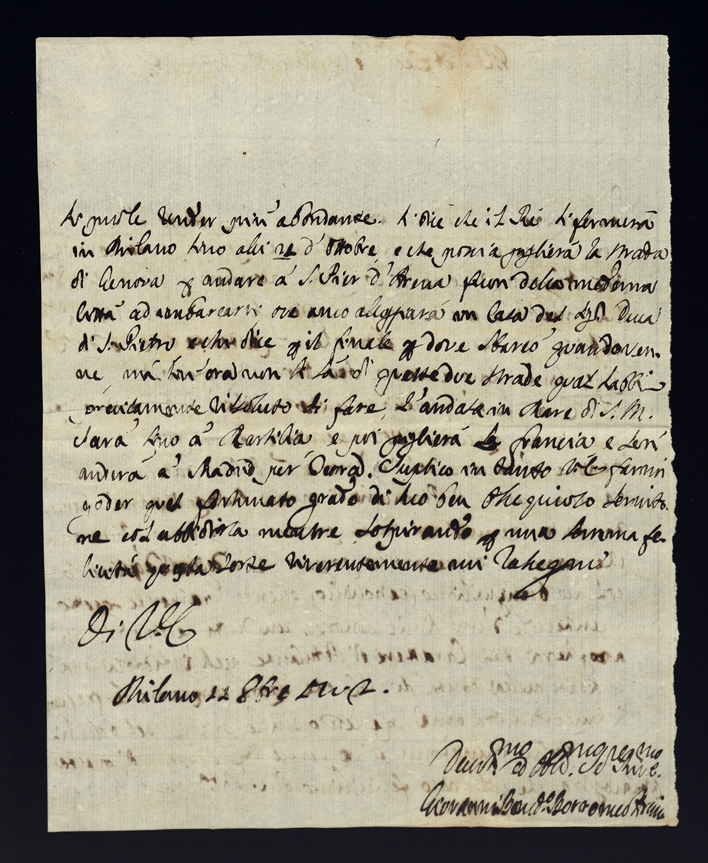 si puole render più abondante. Si dice che il Re si fermerà
in Milano sino alli 22 d'Ottobre, e che poscia piglierà la strada
di Genova p andare à S. Pier d'Arena fuori della medema
Città ad imbarcarsi ove anco alogierà in Casa del Sig. Duca
di S. Pietro e chi dice p il Finale p dove Marcò quando ven-
ne, mà sin' ora non si sà di queste due strade qual habbi
precisamente risoluto di fare, L'andata in Mare di S. M.
sarà sino à Marsilia e poi piglierà la Francia e
anderà à Madrid per Terra. Suplico in tanto V.E. farmi
goder quel fortunato grado di suo ben ossequioso servito-
re col ubbidirla mentre sospirando p una somma fe-
licità questa sorte riverentemente mi rassegno
Di V.E.
Milano 11 8bre 1702.
Devmo ed Obl. Se
Giovanni Bened. Borromeo Arese